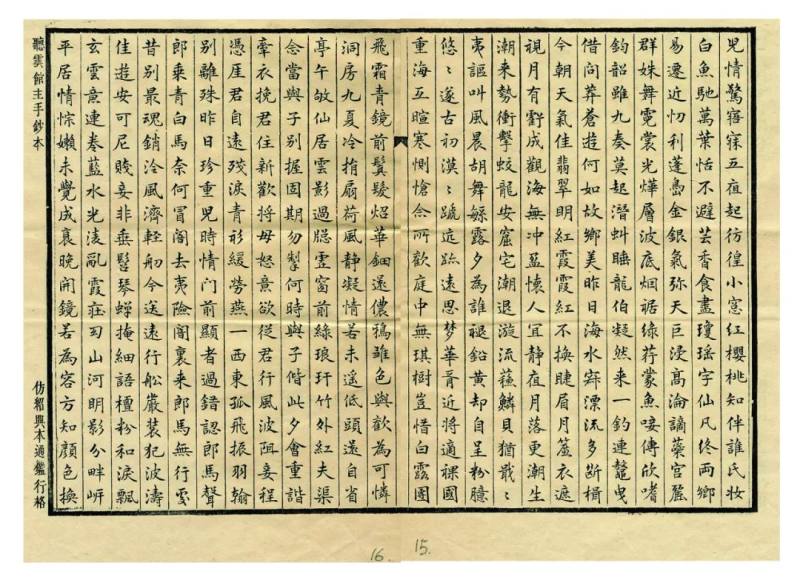 兒情驚寤寐五夜起彷徨小窓紅櫻桃知伴誰氏妝
白魚馳萬葉恬不避芸香食盡瓊瑶字仙凡終兩鄉
易遷近忉利蓬金銀氣弥天巨浸高淪謫蘂宮
群姝舞霓裳光燁層波底烟裾綠荇蒙魚唼傳欣嗜
鈞韶雖九奏莫起潛虯睡龍伯凝然来一釣連鼇曳
借问莽蒼遊何如故鄉美昨日海水漂流多断楫
今朝天氣佳翡翠明紅霞霞紅不換睫眉月衣遮
視月有虧成觀海無冲盈懷人宜静夜月落更潮生
潮来勢衝擊蛟龍安窟宅潮退漩流蘓鱗貝猶戢〻
夷謳叫風晨胡舞緐露夕為誰褪鉛黃却自呈粉臆
悠〻遂古初漠〻蹏迒跡遠思梦華胥近將適裸國
重海亙暄寒惻愴念所歡庭中無琪樹豈惜白露團
15.
飛霜青鏡前鬢髮炤華鈿還儂鵶雛色與歡為可憐
洞房九夏冷揹扇荷風静凝情若未遥低頭還自省
亭午敂仙居雲影過牕虚窗前綠琅玕竹外紅夫渠
念當與子别握固期勿掣何時與子偕此夕會重諧
牽衣挽君住新歡將毋怒意欲從君行風波阻妾程
憑厓君自遠殘淚青衫緩勞燕一西東孤飛振羽翰
别離殊昨日珍重兒時情門前顯者過錯認郎馬聲
郎乘青白馬奈何冒闍去夷險闍裏来郎馬無行雲
昔别最魂銷泠風濟輕舠今送遠行船嚴裝犯波濤
佳遊安可尼賤妾非垂髫琴蟬掩細語檀粉和淚飄
玄雲意連卷藍水光淩亂霞莊山河明影分畔岍
平居情悰嬾未覺成衰晚開鏡若為容方知顏色換
16.
聽雲館主手鈔本
仿紹興本通鑑行格